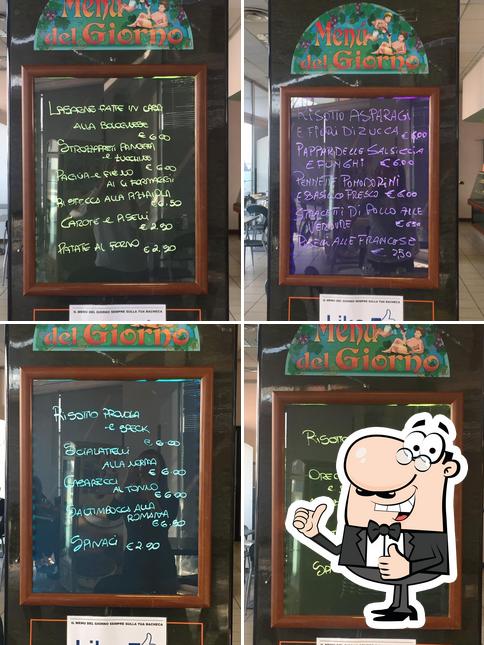 Menu
del Giorno
LASAGNE FATTE IN CASA
ALLA BOLOGNESE
€ 6.00
STROZZAPRETI PANCETTA
e ZUCCHINE
€ 6.00
PAGLIA e FIENO
AI 4 FORMAGGI
€ 6.50
BISTECCA ALLA PIZZAIOLA
CAROTE e PISELLI
€ 2.90
PATATE AL FORNO € 2.90
IL MENU DEL GIORNO SEMPRE SULLA TUA BACHECA
Menu
del Giorno
RISOTTO ASPARAGI
E FIORI DI ZUCCA € 6.00
PAPPARDELLE SALSICCIA
E FUNGHI € 6.00
PENNETTE POMODORINI
E BASILICO FRESCO € 6.00
STRACETTI DI POLLO ALLE
VERDURE € 6.50
ALLE FRANCESE
€ 2,50
IL MENU DEL GIORNO SEMPRE SULLA TUA BACHECA
Like
del Giorno
RISOTTO PROVOLA
e SPECK
€ 6.00
SCIALATIELLI
ALLA NORMA
€ 6.00
CASARECCI
AL TONNO
€ 6.00
SALTIMBOCCA ALLA
ROMANA
€ 6.50
SPINACI € 2.90
IL MENU DEL GIORNO SEMPRE SULLA TUA BACHECA
Like
Menu
del Giorno